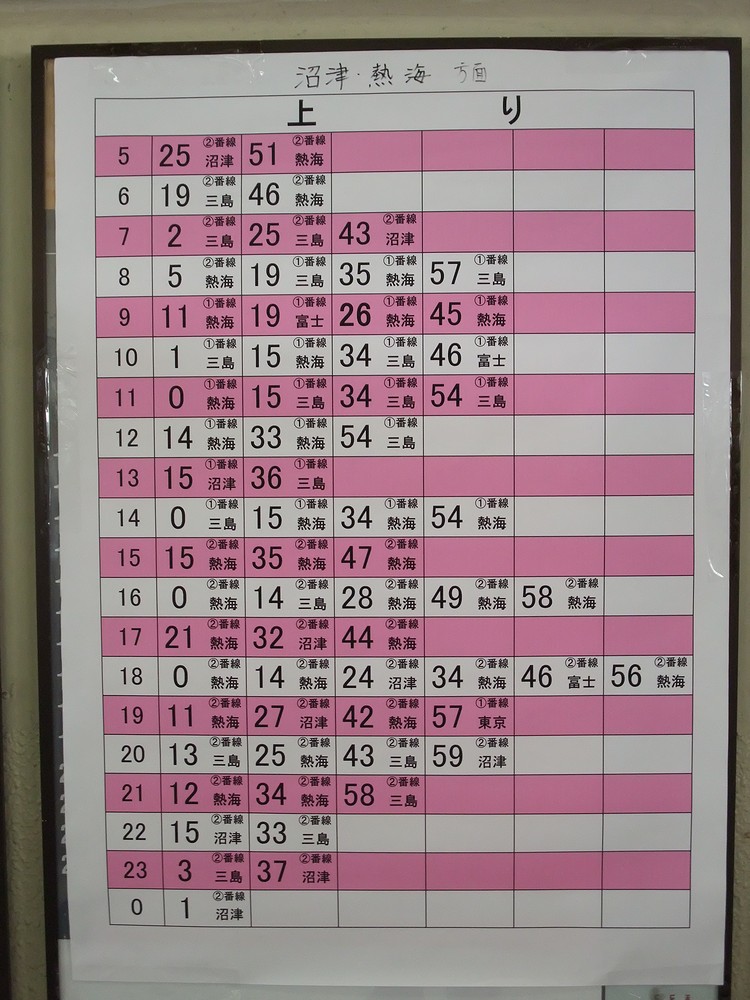 沼津・熱海 方面
上り
5 25 ②番線 沼津 51 ②番線 熱海
6 19 ②番線 三島 46 ②番線 熱海
7 2 ②番線 三島 25 ②番線 三島 43 ②番線 沼津
8 5 ②番線 熱海 19 ①番線 三島 35 ①番線 熱海 57 ①番線 三島
9 11 ①番線 熱海 19 ①番線 富士 26 ①番線 熱海 45 ①番線 熱海
10 1 ①番線 三島 15 ①番線 熱海 34 ①番線 三島 46 ①番線 富士
11 0 ①番線 熱海 15 ①番線 三島 34 ①番線 三島 54 ①番線 三島
12 14 ①番線 熱海 33 ①番線 熱海 54 ①番線 三島
13 15 ①番線 沼津 36 ①番線 三島
14 0 ①番線 三島 15 ①番線 熱海 34 ①番線 熱海 54 ①番線 熱海
15 15 ②番線 熱海 35 ②番線 熱海 47 ②番線 熱海
16 0 ②番線 熱海 14 ②番線 三島 28 ②番線 熱海 49 ②番線 熱海 58 ②番線 熱海
17 21 ②番線 熱海 32 ②番線 沼津 44 ②番線 熱海
18 0 ②番線 熱海 14 ②番線 熱海 24 ②番線 沼津 34 ②番線 熱海 46 ②番線 富士 56 ②番線 熱海
19 11 ②番線 熱海 27 ②番線 沼津 42 ②番線 熱海 57 ①番線 東京
20 13 ②番線 三島 25 ②番線 熱海 43 ②番線 三島 59 ②番線 沼津
21 12 ②番線 熱海 34 ②番線 熱海 58 ②番線 三島
22 15 ②番線 沼津 33 ②番線 三島
23 3 ②番線 三島 37 ②番線 沼津
0 1 ②番線 沼津